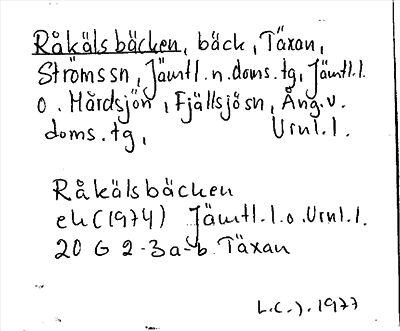 Råkälsbäcken, bäck, Täxan,
Ströms sn, Jämtl. n. doms. tg, Jämtl. l.
o. Mårdsjön, Fjällsjö sn, Ång. v.
doms. tg, Vrnl. l.
Råkälsbäcken
ek (1974) Jämtl. l. o. Vrnl. l.
20 G 2-3 a-b Täxan
L.C.J. 1977